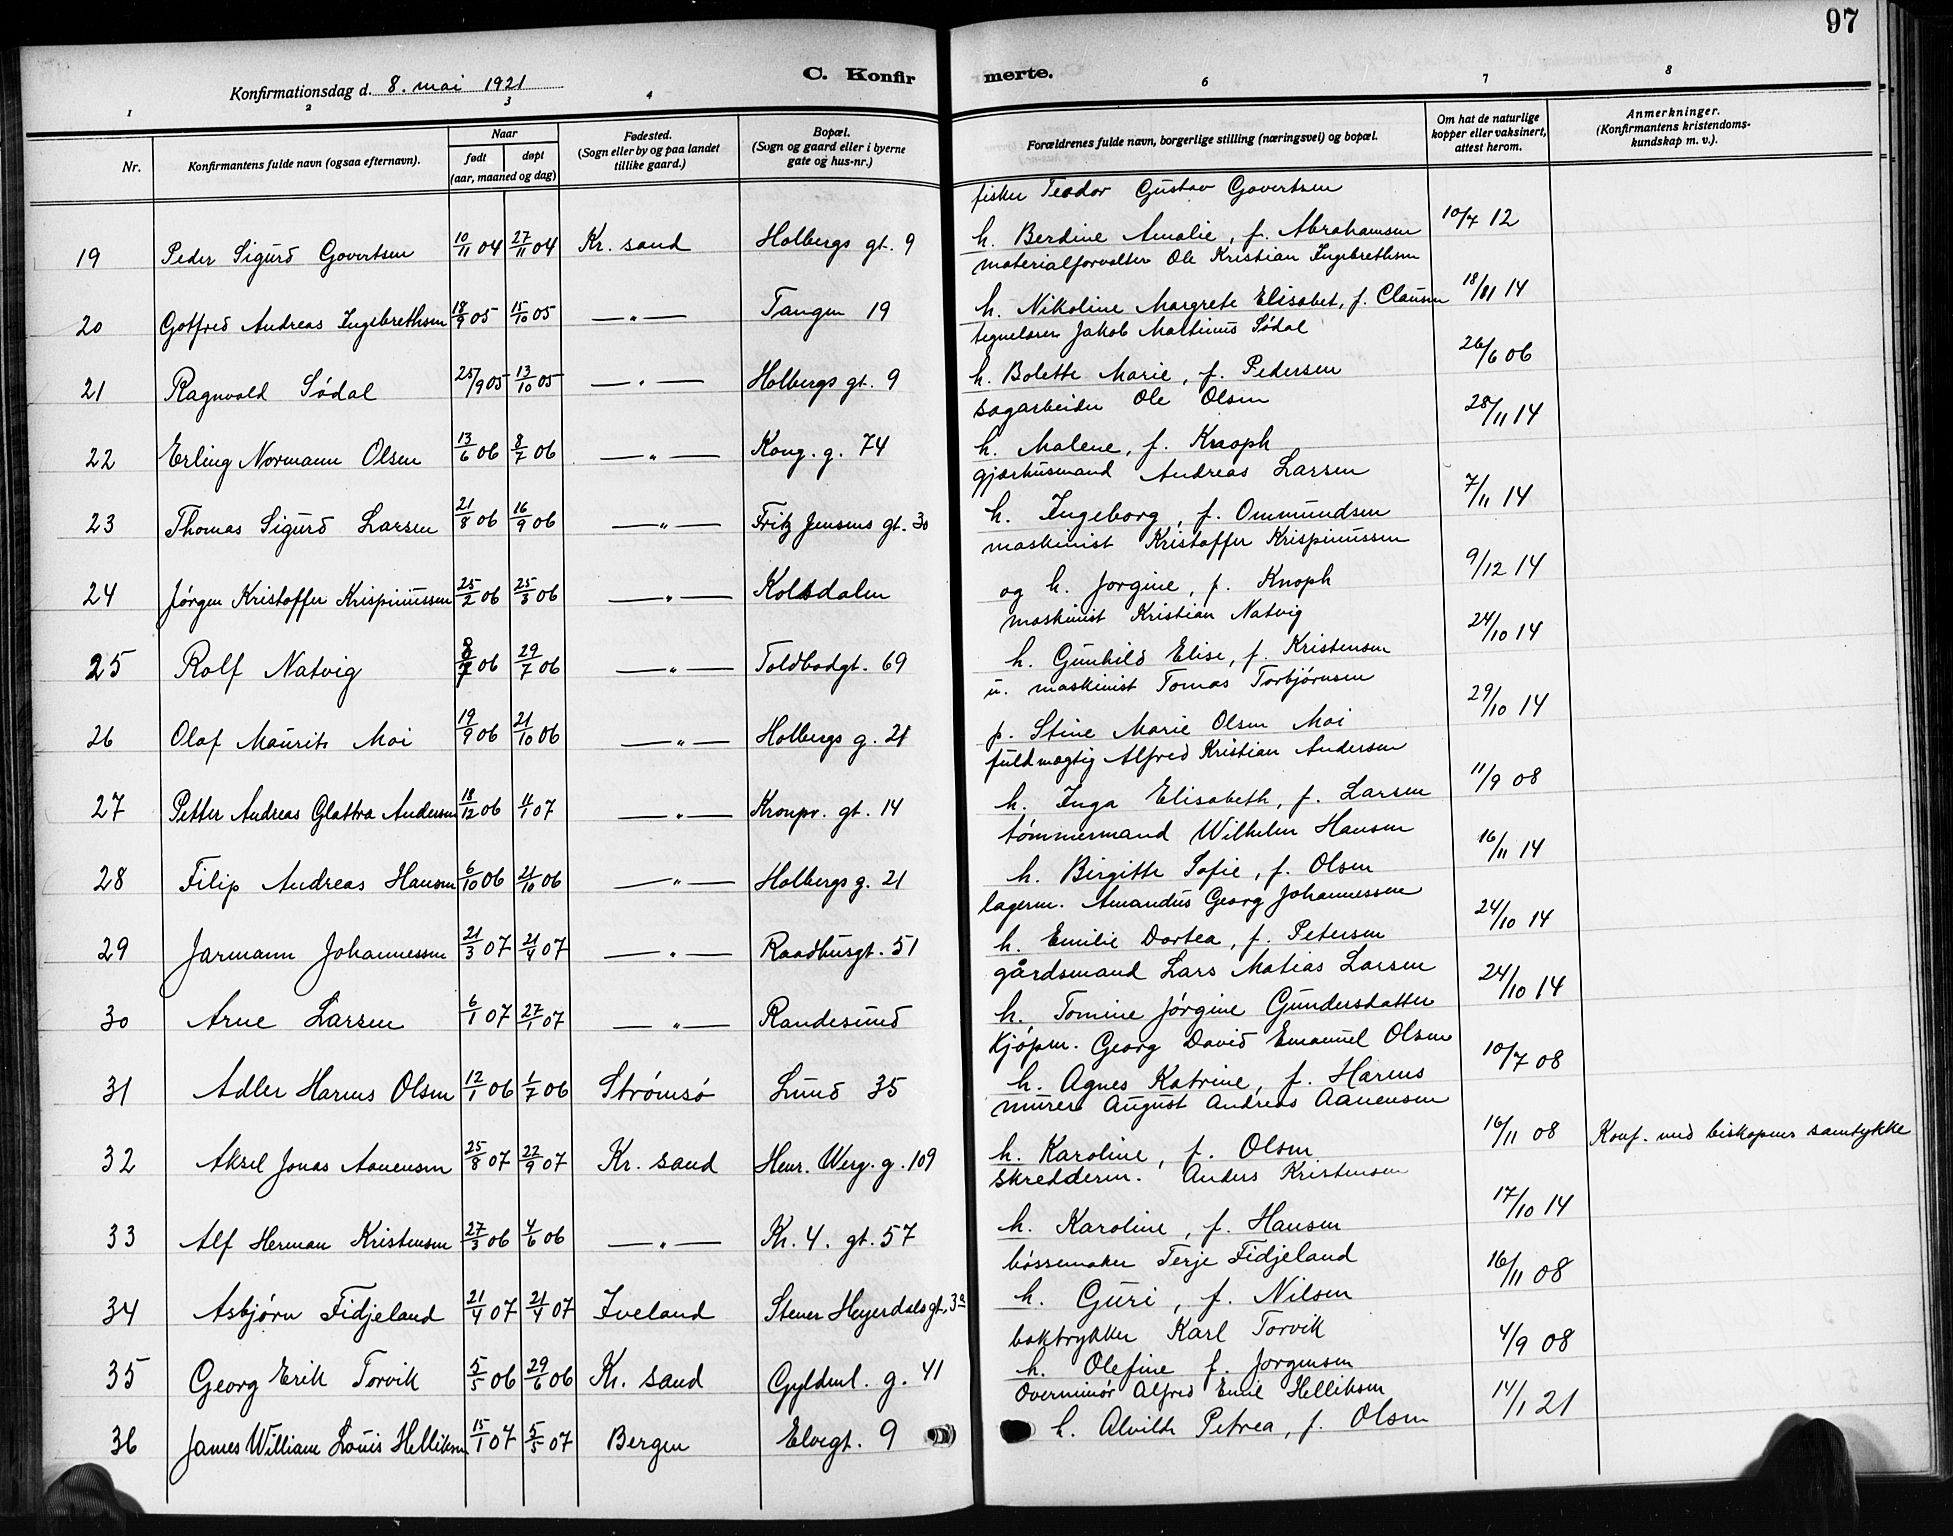 97
Konfirmationsdag d. 8. mai 1921
C. Konfir merte.
1 2 3 4 6 7 8
Nr.
Konfirmantens fulde navn (ogsaa efternavn).
Naar
født døpt
(aar, maaned og dag)
Fødested.
(Sogn eller by og paa landet
tillike gaard.)
Bopæl.
(Sogn og gaard eller i byerne
gate og hus-nr.)
Forældrenes fulde navn, borgerlige stilling (næringsvei) og bopæl.
Om hat de naturlige
kopper eller vaksinert,
attest herom.
Anmerkninger.
(Konfirmantens kristendoms-
kundskap m. v.).
fisker Teodor Gustav Govertsen
19 Peder Sigurd Govertsen 10/11 04 27/11 04 Kr. sand Holbergs gt. 9 h. Berdine Amalie, f. Abrahamsen 10/7 12
materialforvalter Ole Kristian Ingebrethsen
20 Gotfred Andreas Ingebrethsen 18/9 05 15/10 05 —„— Tangen 19 h. Nikoline Margrete Elisabet, f. Clausen 18/11 14
tegnelærer Jakob Martinus Sødal
21 Ragnvald Sødal 25/9 05 13/10 05 —„— Holbergs gt. 9 h. Bolette Marie, f. Pedersen 26/6 06
sagarbeider Ole Olsen
22 Erling Normann Olsen 13/6 06 8/7 06 —„— Kong. g. 74 h. Malene, f. Knoph 28/11 14
gjærhusmand Andreas Larsen
23 Thomas Sigurd Larsen 21/8 06 16/9 06 —„— Fritz Jensens gt. 30 h. Ingeborg, f. Ommundsen 7/11 14
maskinist Kristoffer Krispinussen
24 Jørgen Kristoffer Krispinussen 25/2 06 25/3 06 —„— Kolsdalen og h. Jorgine, f. Knoph 9/12 14
maskinist Kristian Natvig
25 Rolf Natvig 8/7 06 29/7 06 —„— Toldbodgt. 69 h. Gunhild Elise, f. Kristensen 24/10 14
u. maskinist Tomas Torbjørnsen
26 Olaf Maurits Moi 19/9 06 21/10 06 —„— Holbergs g. 21 p. Stine Marie Olsen Moi 29/10 14
fuldmægtig Alfred Kristian Andersen
27 Petter Andreas Glattra Andersen 18/12 06 4/1 07 —„— Kronpr. gt. 14 h. Inga Elisabeth, f. Larsen 11/9 08
tømmermand Wilhelm Hansen
28 Filip Andreas Hansen 6/10 06 21/10 06 —„— Holbergs g. 21 h. Birgitte Sofie, f. Olsen 16/11 14
lagerm. Amandus Georg Johannessen
29 Jarmann Johannessen 21/3 07 21/4 07 —„— Raadhusgt. 51 h. Emilie Dortea, f. Petersen 24/10 14
gårdsmand Lars Matias Larsen
30 Arne Larsen 6/1 07 27/1 07 —„— Randesund h. Tomine Jørgine Gundersdatter 24/10 14
Kjøpm. Georg David Emanuel Olsen
31 Adler Harms Olsen 12/1 06 1/7 06 Strømsø Lund 35 h. Agnes Katrine, f. Harms 10/7 08
murer August Andreas Aanensen
32 Aksel Jonas Aanensen 25/8 07 22/9 07 Kr. sand Henr. Werg. g. 109 h. Karoline, f. Olsen 16/11 08 Konf. med biskopens samtykke
skredderm. Anders Kristensen
33 Alf Herman Kristensen 27/3 06 4/6 06 —„— Kr. 4. gt. 57 h. Karoline, f. Hansen 17/10 14
bøssemaker Terje Fidjeland
34 Asbjørn Fidjeland 21/4 07 21/4 07 Iveland Stener Heyerdals gt. 3a h. Guri, f. Nilsen 16/11 08
boktrykker Karl Torvik
35 Georg Erik Torvik 5/5 06 29/6 06 Kr. sand Gyldenl. g. 41 h. Olefine f. Jorgensen 4/9 08
Overminør Alfred Emil Helliksen
36 James William Louis Helliksen 15/1 07 5/5 07 Bergen Elvegt. 9 h. Alvilde Petrea, f. Olsen 14/1 21